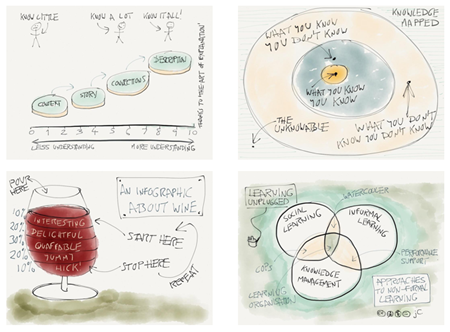 KNOW LITTLE
KNOW A LOT
KNOW IT ALL!
CONTEXT
STORY
CONNECTIONS
DESCRIPTION
0 1 2 3 4 5 6 7 8 9 10
LESS UNDERSTANDING
MORE UNDERSTANDING
THANKS TO THE ART OF EXPLANATION
KNOWLEDGE
MAPPED
WHAT YOU KNOW
YOU DON'T KNOW
WHAT YOU KNOW
YOU KNOW
THE
UNKNOWABLE
WHAT YOU DON'T
KNOW YOU DON'T KNOW
POUR HERE
AN INFOGRAPHIC
ABOUT WINE
10%
20%
30%
20%
10%
INTERESTING
DELIGHTFUL
QUAFFABLE
YUMMY
HICK'
START HERE
STOP HERE
REPEAT
LEARNING
UNPLUGGED
WATERCOOLER
SOCIAL
LEARNING
INFORMAL
LEARNING
KNOWLEDGE
MANAGEMENT
PERFORMANCE
SUPPORT
COPS
LEARNING
ORGANISATION
APPROACHES
TO NON-FORMAL
LEARNING
jC